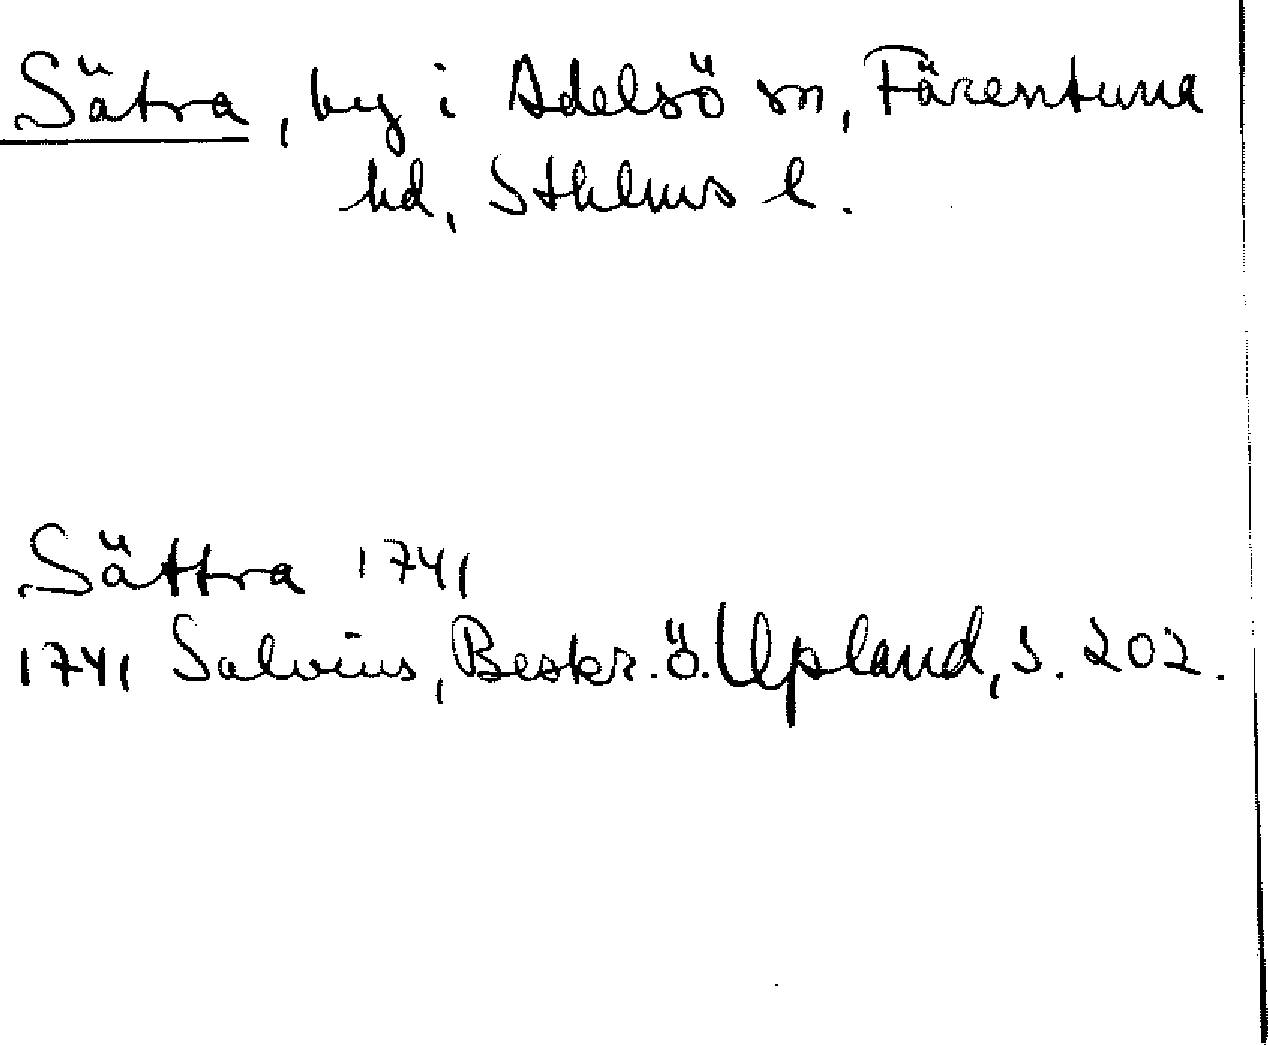 Sätra, by i Adelsö sn, Färentuna
hd, Sthlms l.
Sättra 1741
1741 Salvius, Beskr. ö. Upland, s. 202.